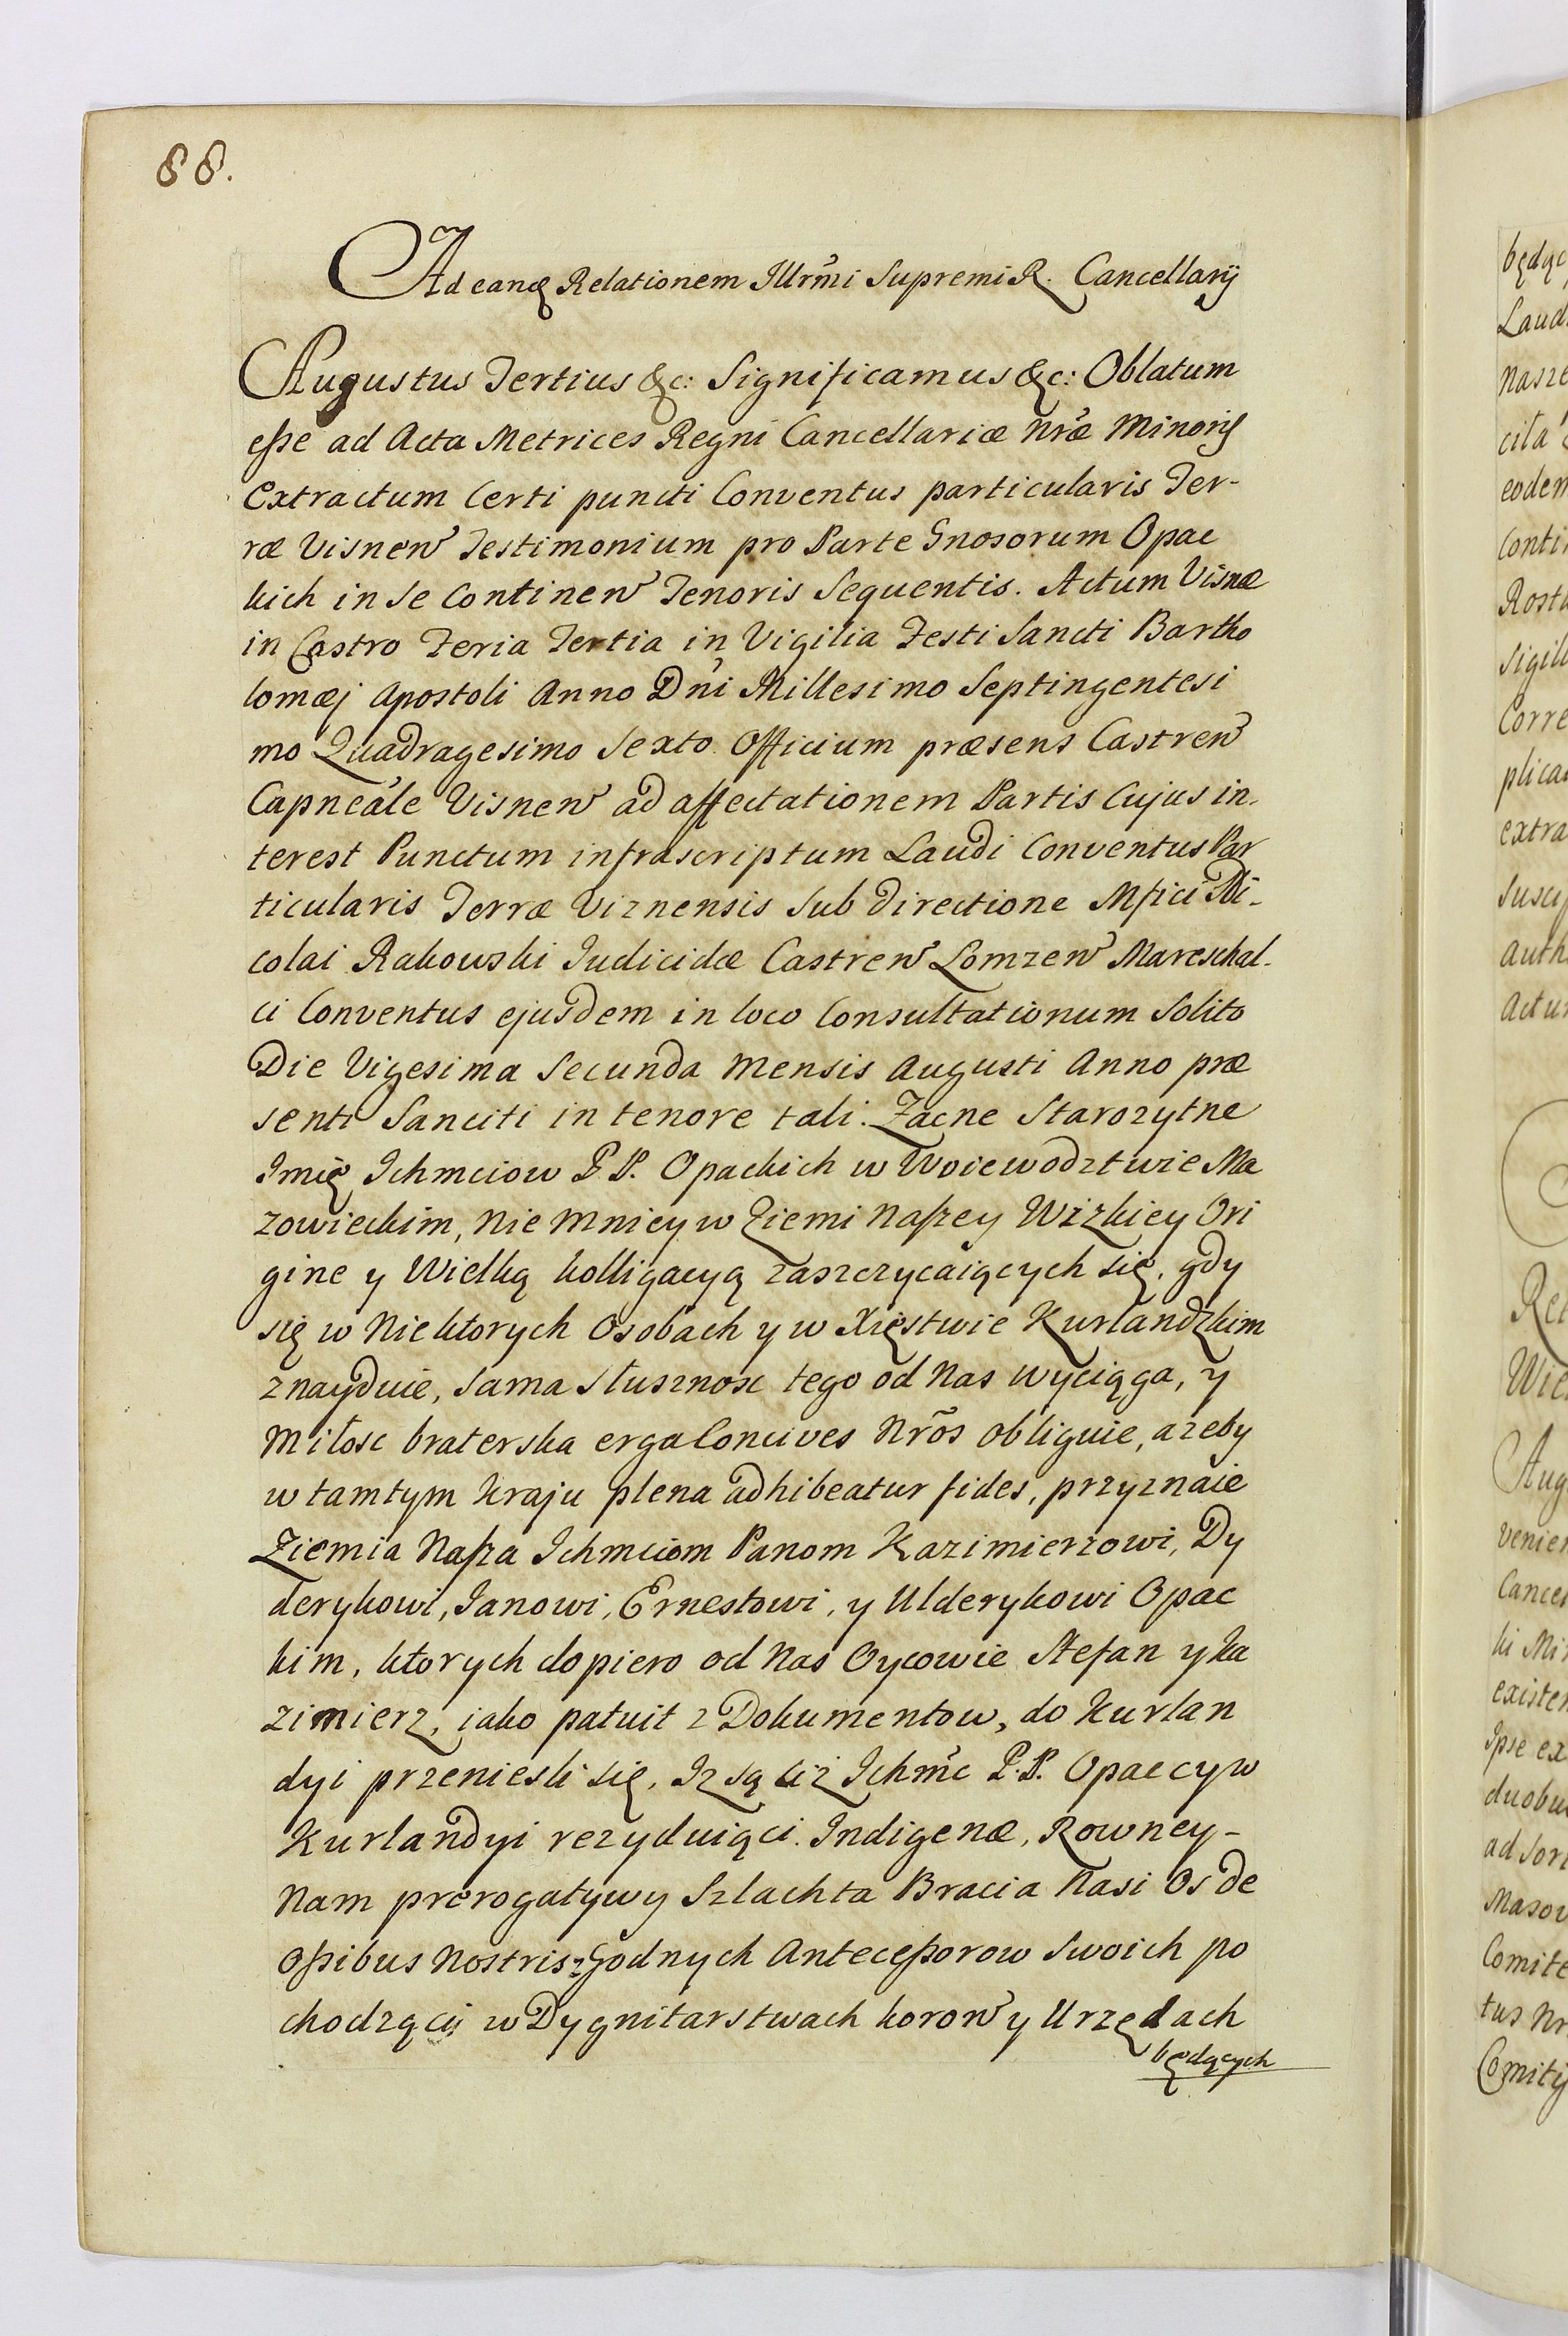 88.
Ad eandę Relationem Illrmi Supremi R. Cancellarÿ
Augustus Tertius &c: Significamus &c: Oblatum
esse ad Acta Metrices Regni Cancellariæ nræ Minoris
Extractum Certi puncti Conventus particularis Ter-
ræ Visnen Testimonium pro Parte Gnosorum Opac
kich in se Continen Tenoris Sequentis. Actum Visnæ
in Castro Feria Tertia in Vigilia Festi Sancti Bartho
lomæj Apostoli Anno Dni Millesimo Septingentesi
mo Quadragesimo Sexto. Officium præsens Castren
Capneale Visnen ad affectationem Partis Cujus in-
terest Punctum infrascriptum Laudi Conventus Par
ticularis Terræ Viznensis sub directione Mfici Ni-
colai Rakowski Judicidæ Castren Lomzen Mareschal-
ci Conventus ejusdem in loco Consultationum Solito
Die Vigesima Secunda Mensis Augusti Anno præ
senti Sanciti in tenore tali. Zacne Starozytne
Imię Ichmciow P. P. Opackich w Woiewodztwie Ma
zowieckim, nie mniey w Ziemi Naszey Wizkiey Ori
gine y Wielką kolligacyą zaszczycaiących się, gdy
się w Niektorych Osobach y w Xięstwie Kurlandzkim
znayduie, sama słusznosc tego od Nas wyciąga, y
Miłosc braterska erga Concives Nros obliguie, azeby
w tamtym Kraju plena adhibeatur fides, przyznaie
Ziemia Nasza Ichmciom Panom Kazimierzowi, Dy
derykowi, Janowi, Ernestowi, y Ulderykowi Opac
kim, ktorych dopiero od Nas Oycowie Stefan y Ka
zimierz, iako patuit z Dokumentow, do Kurlan
dyi przeniesli się, Iz są ciz Ichmc P. P. Opaccy w
Kurlandyi rezyduiąci Indigenæ, Rowney-
Nam prerogatywy Szlachta Bracia Nasi Os de
Ossibus Nostris z Godnych Antecessorow Swoich po
chodzący w Dygnitarstwach koron y Urzędach
będących
będąc
Laud
Nasze
cita
eodem
Conti
Rost
Sigill
Corre
plica
extra
Susci
Auth
Actu
Rel
Wie
Aug
venien
Cance
ki Mi
existe
Ipse ex
duobu
ad Sor
Masov
Comite
tus Nr
Comitÿ